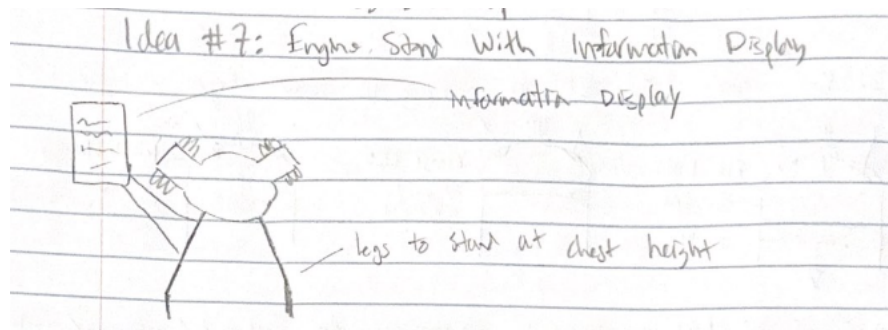 Idea #7: Engine Stand With Information Display
Information Display
legs to stand at chest height